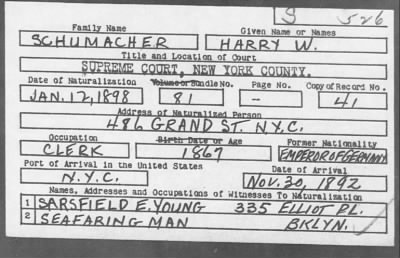 S 526
Family Name Given Name or Names
SCHUMACHER HARRY W.
Title and Location of Court
SUPREME COURT, NEW YORK COUNTY.
Date of Naturalization Volume or Bundle No. Page No. Copy of Record No.
JAN. 12, 1898 81 — 41
Address of Naturalized Person
486 GRAND ST. N.Y.C.
Occupation Birth Date or Age Former Nationality
CLERK 1867 EMPEROR OF GERMANY
Port of Arrival in the United States Date of Arrival
N.Y.C. NOV. 30, 1892
Names, Addresses and Occupations of Witnesses To Naturalization
1 SARSFIELD E. YOUNG 335 ELLIOT PL.
2 SEAFARING MAN BKLYN.